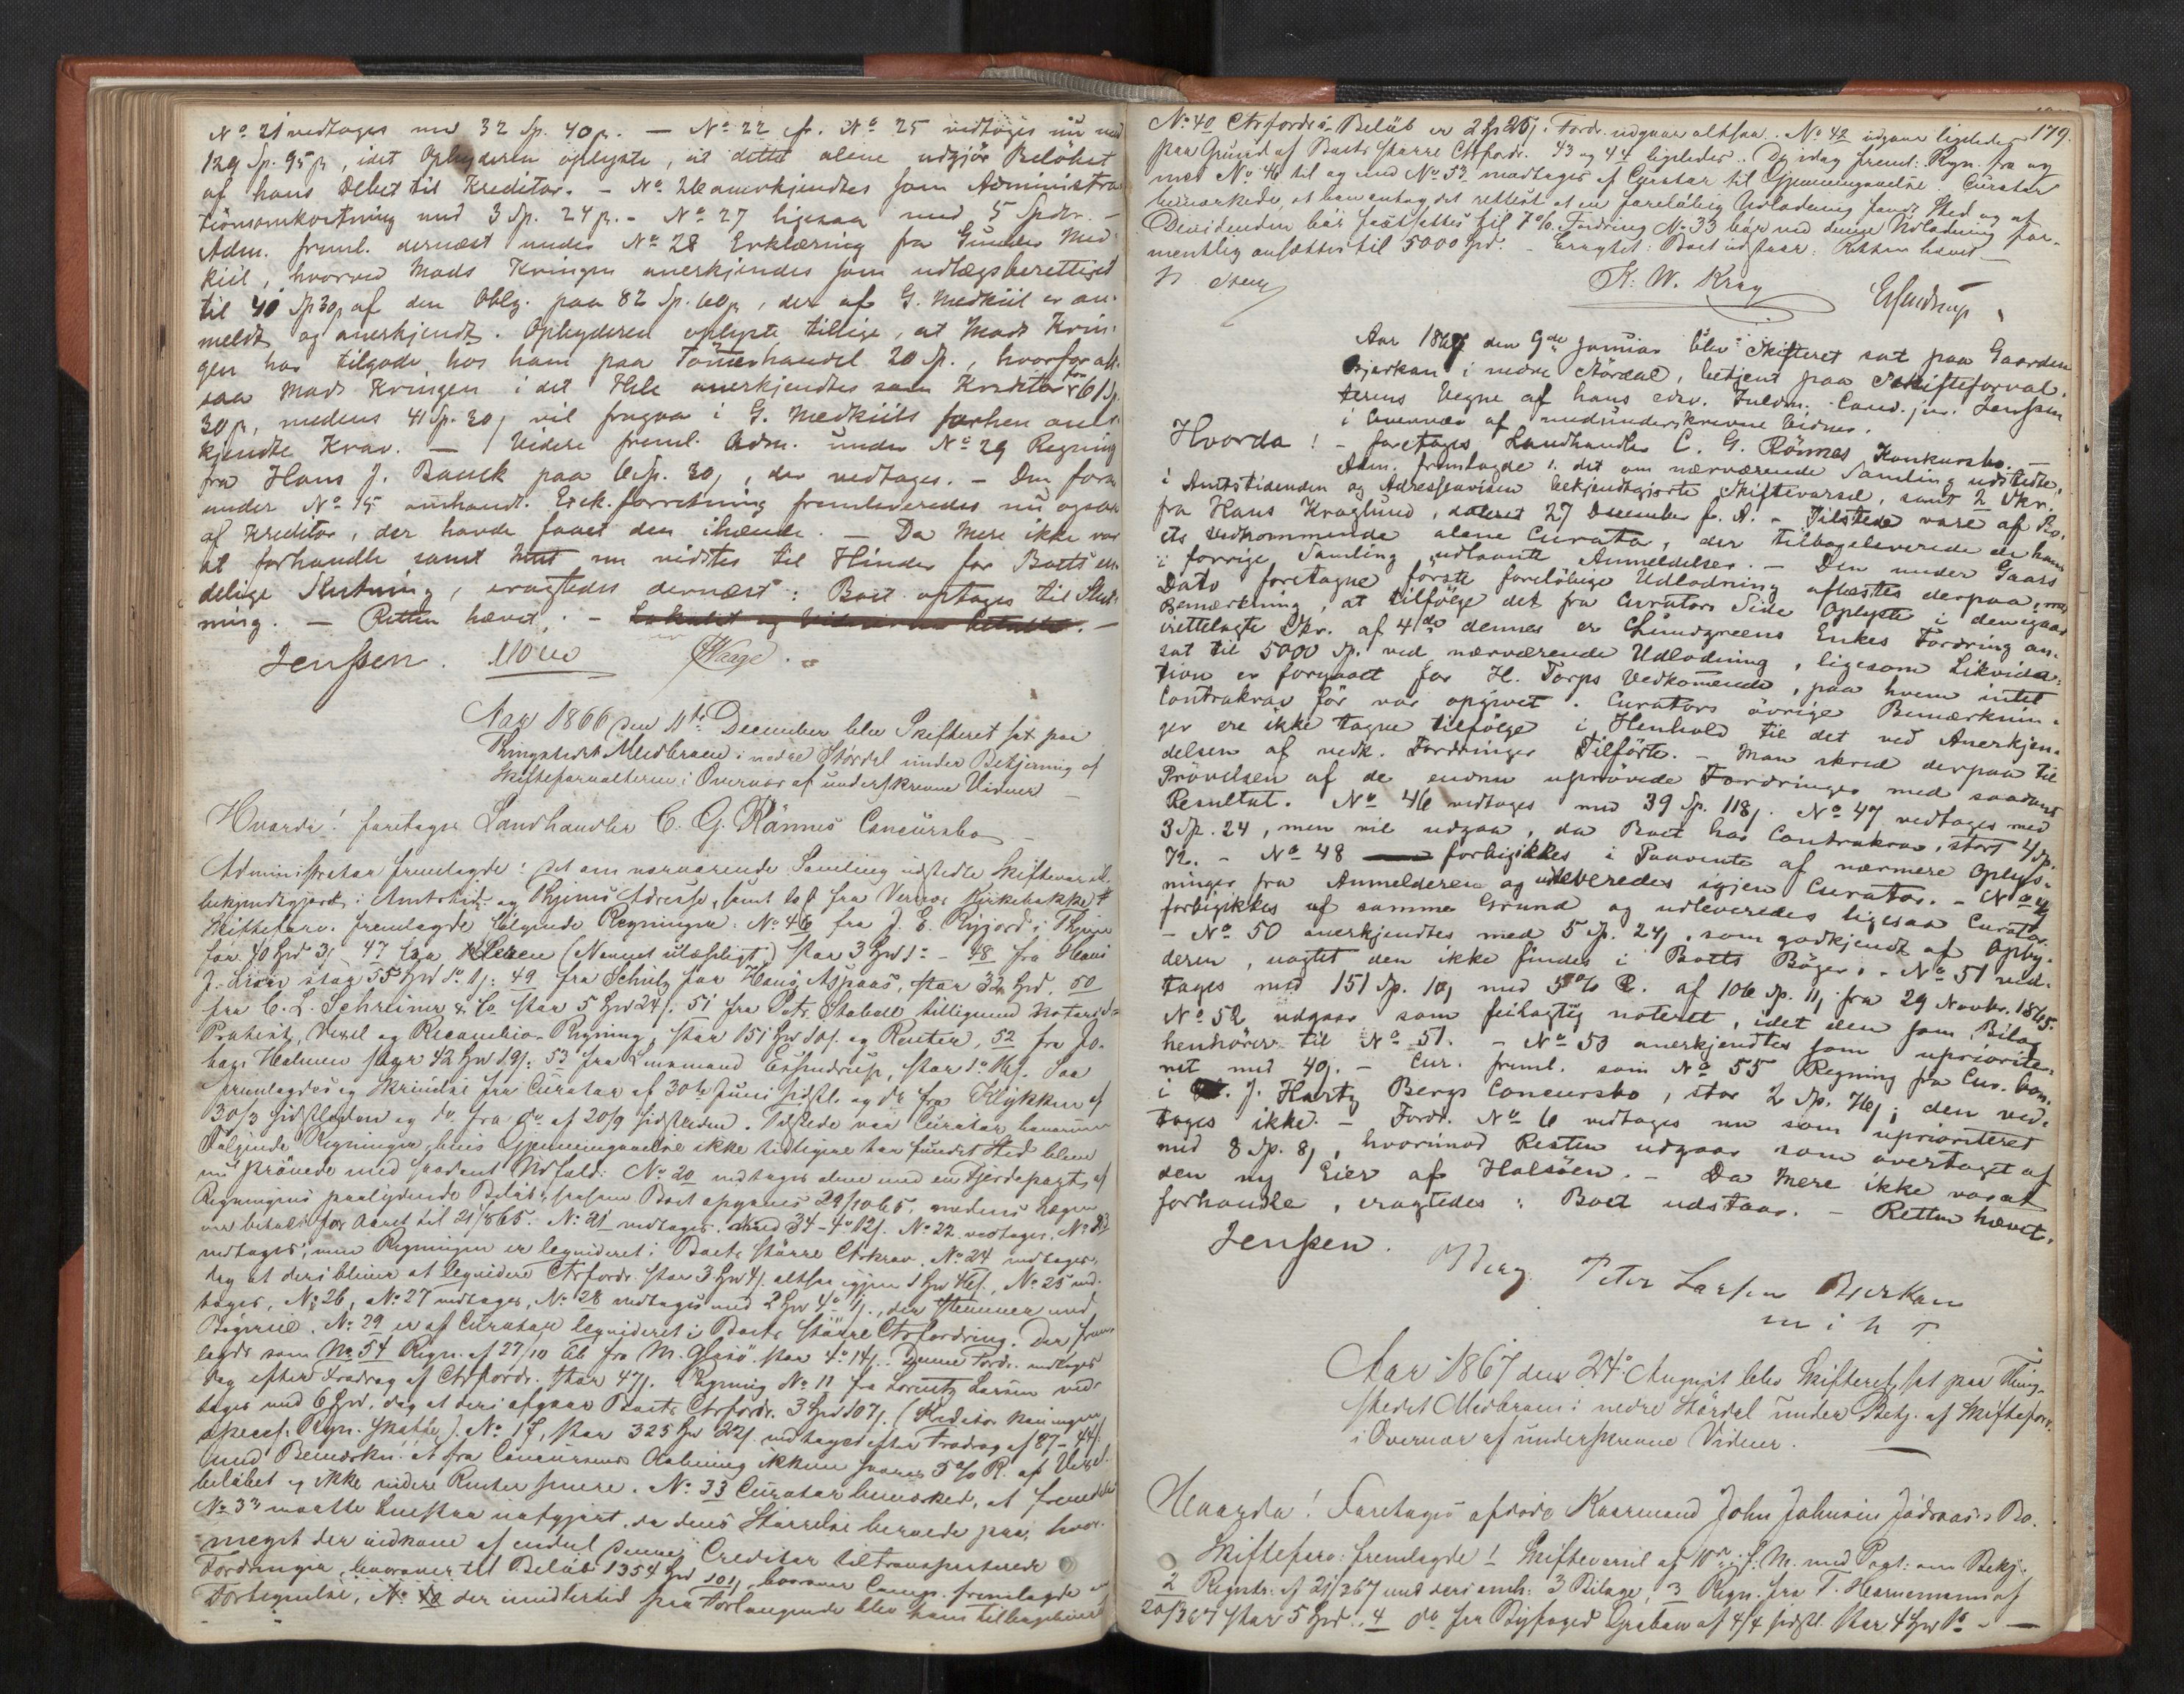 No 21 vedtages med 32 Sp. 40 β. — No 22 cfr. No 25 vedtages nu med
129 Sp. 95 β, idet Opbyderen oplyste, at dette alene udgjör Belöbet
af hans Debet til Kreditor. — No 26 anerkjendtes som Administra-
tionsomkostning med 3 Sp. 24 β. — No 27 ligesaa med 5 Spdr. —
Adm. freml. dernæst under No 28 Erklæring fra Gunder Med-
kiil, hvorved Mads Kringen anerkjendes som udlægsberettiget
til 40 Sp 30 β af den Oblg. paa 82 Sp. 60 β, der af G. Medkiil er an-
meldt og anerkjendt. Opbyderen oplyste tillige, at Mads Krin-
gen har tilgode hos ham paa Tömmerhandel 20 Sp., hvorfor alt-
saa Mads Kringen i det Hele anerkjendtes som Kreditor for 61 Sp.
30 β, medens 41 Sp. 30 β vil fragaa i G. Medkiils forhen aner-
kjendte Krav. — Videre freml. Adm. under No 29 Regning
fra Hans J. Bauck paa 6 Sp. 30 β, der vedtages. — Den foran
under No 15 omhandl. Exek.forretning fremleveredes nu ogsaa
af Kreditor, der havde faaet den ihænde. — Da Mere ikke var
at forhandle samt Intet nu vidstes til Hinder for Boets en-
delige Slutning, eragtedes dernæst: Boet optages til Slut-
ning. — Retten hævet. — Lokalet og Vidnerne betalte. —
Jenssen. Moum Waage.
Aar 1866 den 11te December blev Skifteret sat paa
Thingstedet Medbraaen i nedre Stördal under Betjening af
Skifteforvalteren i Overvær af underskrevne Vidner —
Hvorda! foretages Landhandler C. G. Rönnes Concursbo —
Administrator fremlagde: det om nærværende Samling udstedte Skiftevarsel
bekjendtgjort i Amtstid. og Thjems Adresse, samt
Skifteforv. fremlagde følgende Regninger: No 46 fra J. E. Ryjord i Thjem
for 40 Spd 3 β 47 fra (Navnet ulæseligt) stor 3 Spd 1: — 48 fra Hans
J. stor 55 Spd 1: 49 fra Schulz for Hans Aspaas, stor 32 Spd. 50
fra C. L. Schreiner & Co stor 5 Spd 24 β. 51 fra Petr. Stabell tilligemed Notarial-
Protest, Vexel og Recambio-Regning, stor 151 Spd 10 β. og Renter, 52 fra Jo-
han Halmen stor 42 Spd 19 β. 53 fra Lensmand Essendrup, stor 1: 16 β. Saa
fremlagdes og Skrivelse fra Curator af 30te Juni sidstl. og do fra Klykken af
30/3 sidstleden og do fra do af 20/9 sidstleden. Tilstede var Curator hvorunder
Følgende Regninger, hvis Gjennemgaaelse ikke tidligere har fundet Sted blev
nu prövede med saadant Udfald: No 20 vedtages alene med en Fjerdepart af
Regningens paalydende Belöb, saasom Boet opgaves 29/10 65, medens Lægen
var betalt for Aaret til 21/8 65. No 21 vedtages med 34 - 4: 12 β. No 22 vedtages. No 23
vedtages, men Regningen er leqvideret i Boets större Ctrkrav. No 24 vedtages,
dog at deri bliver at leqvidere Ctrfordr. stor 3 Spd 4 β. altsaa igjen 1 Spd 46 β., No 25 ved-
tages, No 26, No 27 vedtages, No 28 vedtages med 2 Spd 4: 1 β., der stemmer med
Bøgerne. No 29 er af Curator leqvideret i Boets större Ctrfordring. Der frem-
lagdes som No 54 Regn. af 27/10 66 fra M. Glasö stor 4: 14 β. Denne Fordr. vedtages
dog efter Fradrag af Ctrfordr. stor 47 β. Regning No 11 fra Lorentz Larsen ved-
tages med 6 Spd, dog at deri afgaar Boets Ctrfordr. 3 Spd 107 β. (Kreditor kan ingen
specif. Regn. skaffe). No 17, stor 325 Spd 22 β. vedtages efter Fradrag af 87 - 44 β.
med Bemærkn: at fra Concursens Aabning ikkun svares 5 % R. af Vexel-
belöbet og ikke videre Renter svares. No 33 Curator bemærked, at
No 33 maatte henstaa uafgjort, da dens Störrelse beroede paa, hvor-
meget der udkom af endel denne Creditor tiltransporterede
Fordringer, hvorover til Belöb 1354 Spd 101 β hvorover Comp. fremlagde en
Fortegnelse, No 40 der imidlertid paa Forlangende blev ham tilbageleveret
179.
No 40 Ctrfordr's Belöb er 2 Sp 25 β; Fordr. udgaar altsaa. No 42 udgaar ligeledes
paa Grund af Boets större Ctrfordr. 43 og 44 ligeledes. De idag freml. Regn. fra og
med No 46 til og med No 53 modtages af Curator til Gjennemgaaelse. Curator
bemærkede, at han antog det rettest at en foreløbig Udlodning fandt Sted og at
Dividenden bör fastsættes til 7 %. Fordring No 33 bör ved denne Udlodning for-
mentlig ansættes til 5000 Spd. — Eragtet: Boet udstaar. Retten hævet —
K. W. Krag Essendrup
Aar 1867 den 9de Januar blev Skifteret sat paa Gaarden
Bjerkan i nedre Stördal, betjent paa Skifteforval-
terens Vegne af hans edsv. Fuldm. Cand. jur. Jenssen
i Overvær af medunderskrevne Vidner.
Hvorda! — foretages Landhandler C. G. Rönnes Konkursbo. —
Adm. fremlagde 1. det om nærværende Samling udstedte,
i Amtstidenden og Adresseavisen bekjendtgjorte Skiftevarsel, samt 2 Skr.
fra Hans Kraglund, dateret 27 December f. A. — Tilstede vare af Bo-
ets Vedkommende alene Curator, der tilbageleverede de ham
i forrige Samling udlaante Anmeldelser. — Den under Gaars
Dato foretagne förste forelöbige Udlodning aflæstes derpaa, med
Bemærkning, at tilfölge det fra Curators Side Oplyste i den igaar
irettelagte Skr. af 4de dennes er Chr. Lundgreens Enkes Fordring an-
sat til 5000 Sp. ved nærværende Udlodning, ligesom Likvida-
tion er foregaaet for H. Torps Vedkommende, paa hvem intet
Contrakrav för var opgivet. Curators övrige Bemærknin-
ger ere ikke tagne tilfölge i Henhold til det ved Anerkjen-
delsen af vedk. Fordringer Tilförte. — Man skred derpaa til
Prövelsen af de endnu uprövede Fordringer med saadant
Resultat. No 46 vedtages med 39 Sp. 118 β. No 47 vedtages med
3 Sp. 24, men vil udgaa, da Boet har Contrakrav, stort 4 Sp.
72. — No 48 forbigikkes i Paavente af nærmere Oplys-
ninger fra Anmelderen og udleveredes igjen Curator. — No 49
forbigikkes af samme Grund og udleveredes ligesaa Curator.
— No 50 anerkjendtes med 5 Sp. 24 β, som godkjendt af Opby-
deren, uagtet den ikke findes i Boets Böger. — No 51 ved-
tages med 151 Sp. 10 β med 5 % R. af 106 Sp. 11 β fra 29 Novbr. 1865.
No 52 udgaar som feilagtig noteret, idet den som Bilag
henhörer til No 51. — No 53 anerkjendtes som upriorite-
ret med 40 β. — Cur. freml. som No 55 Regning fra Cur. bon.
i J. Hartz Bergs Concursbo, stor 2 Sp. 76 β; den ved-
tages ikke. — Fordr. No 6 vedtages nu som uprioriteret
med 8 Sp. 8 β, hvorimod Resten udgaar som overtaget af
den ny Eier af Halsöen. — Da Mere ikke var at
forhandle, eragtedes: Boet udstaar. — Retten hævet.
Jenssen. Peter Larsen Bierkan
Aar 1867 den 24: August blev Skifteret sat paa Thing-
stedet Medbraaen i nedre Stördal under Betj. af Skifteforv.
i Overvær af underskrevne Vidner. —
Hvorda! Foretages afdöde Kaarmand John Johnsen Jådraases Bo.
Skifteforv: fremlagde 1 Skiftevarsel af 10de f. M. med Pagt: om Bekj.
2 Registr: af 21/3 67 med deri omh: 3 Bilage, 3 Regn. fra T. af
20/3 67 stor 5 Spd. 4 do fra Byfoged Grabow af 4/4 sidstl. stor 4 Spd